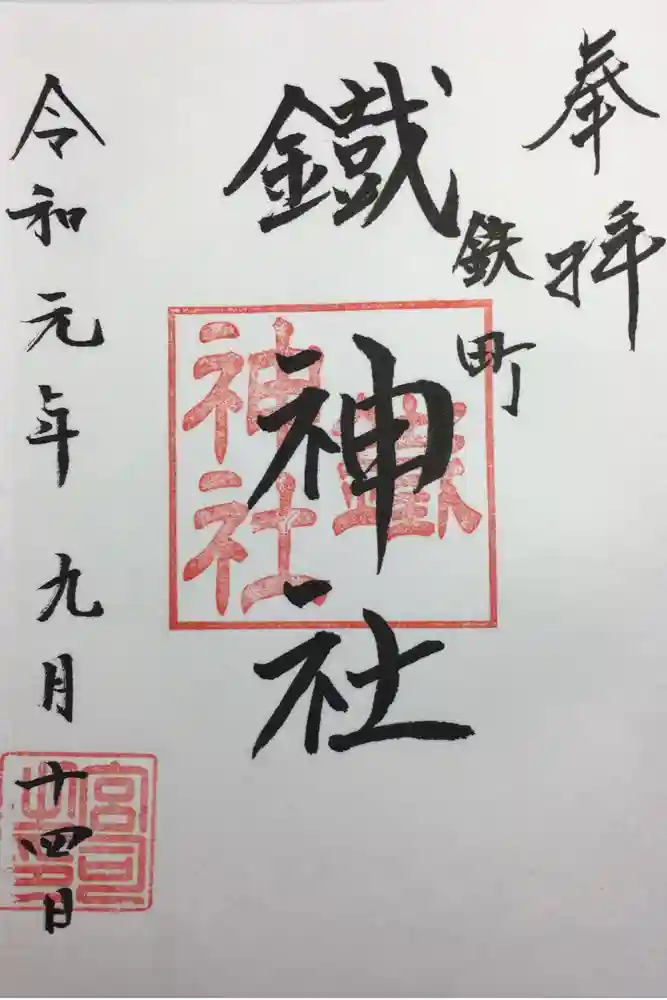 奉拝
鉄町
鐵神社
神社
令和元年九月十四日
宮司之印